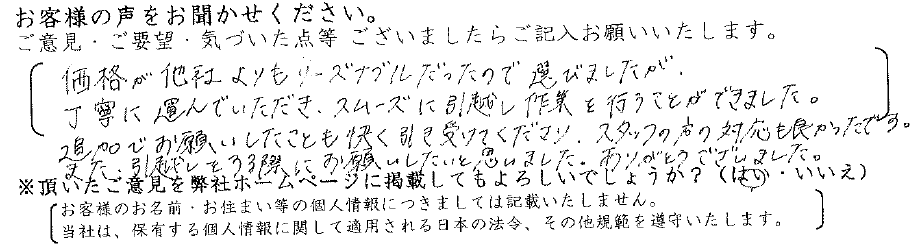 お客様の声をお聞かせください。
ご意見・ご要望・気づいた点等 ございましたらご記入お願いいたします。
価格が他社よりもリーズナブルだったので選びましたが、
丁寧に運んでいただき、スムーズに引越し作業を行うことができました。
追加でお願いしたことも快く引き受けてくださり、スタッフの方の対応も良かったです。
また、引越しをする際に、お願いしたいと思いました。ありがとうございました。
※頂いたご意見を弊社ホームページに掲載してもよろしいでしょうか？（はい・いいえ）
お客様のお名前・お住まい等の個人情報につきましては記載いたしません。
当社は、保有する個人情報に関して適用される日本の法令、その他規範を遵守いたします。